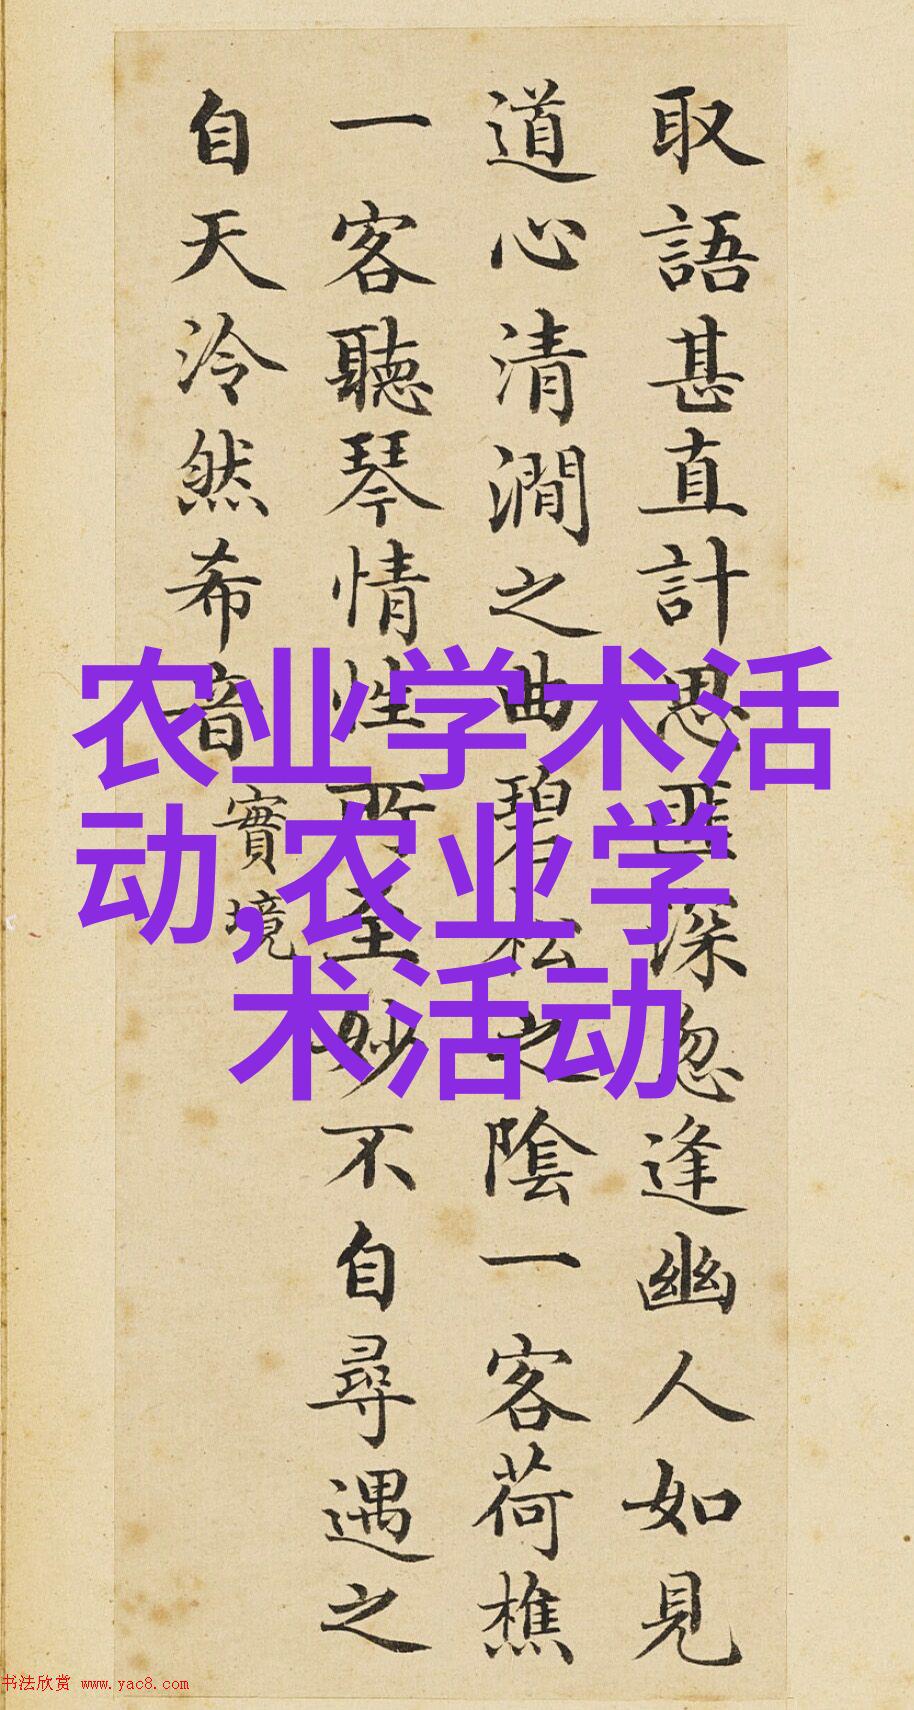 取語甚直計思匪深忽逢幽人如見
道心清澗之曲碧松之陰一客荷樵
一客聽琴情性所至妙不自尋遇之
自天泠然希音
實境
农业学术活
动,农业学
术活动
书法欣赏 www.yac8.com